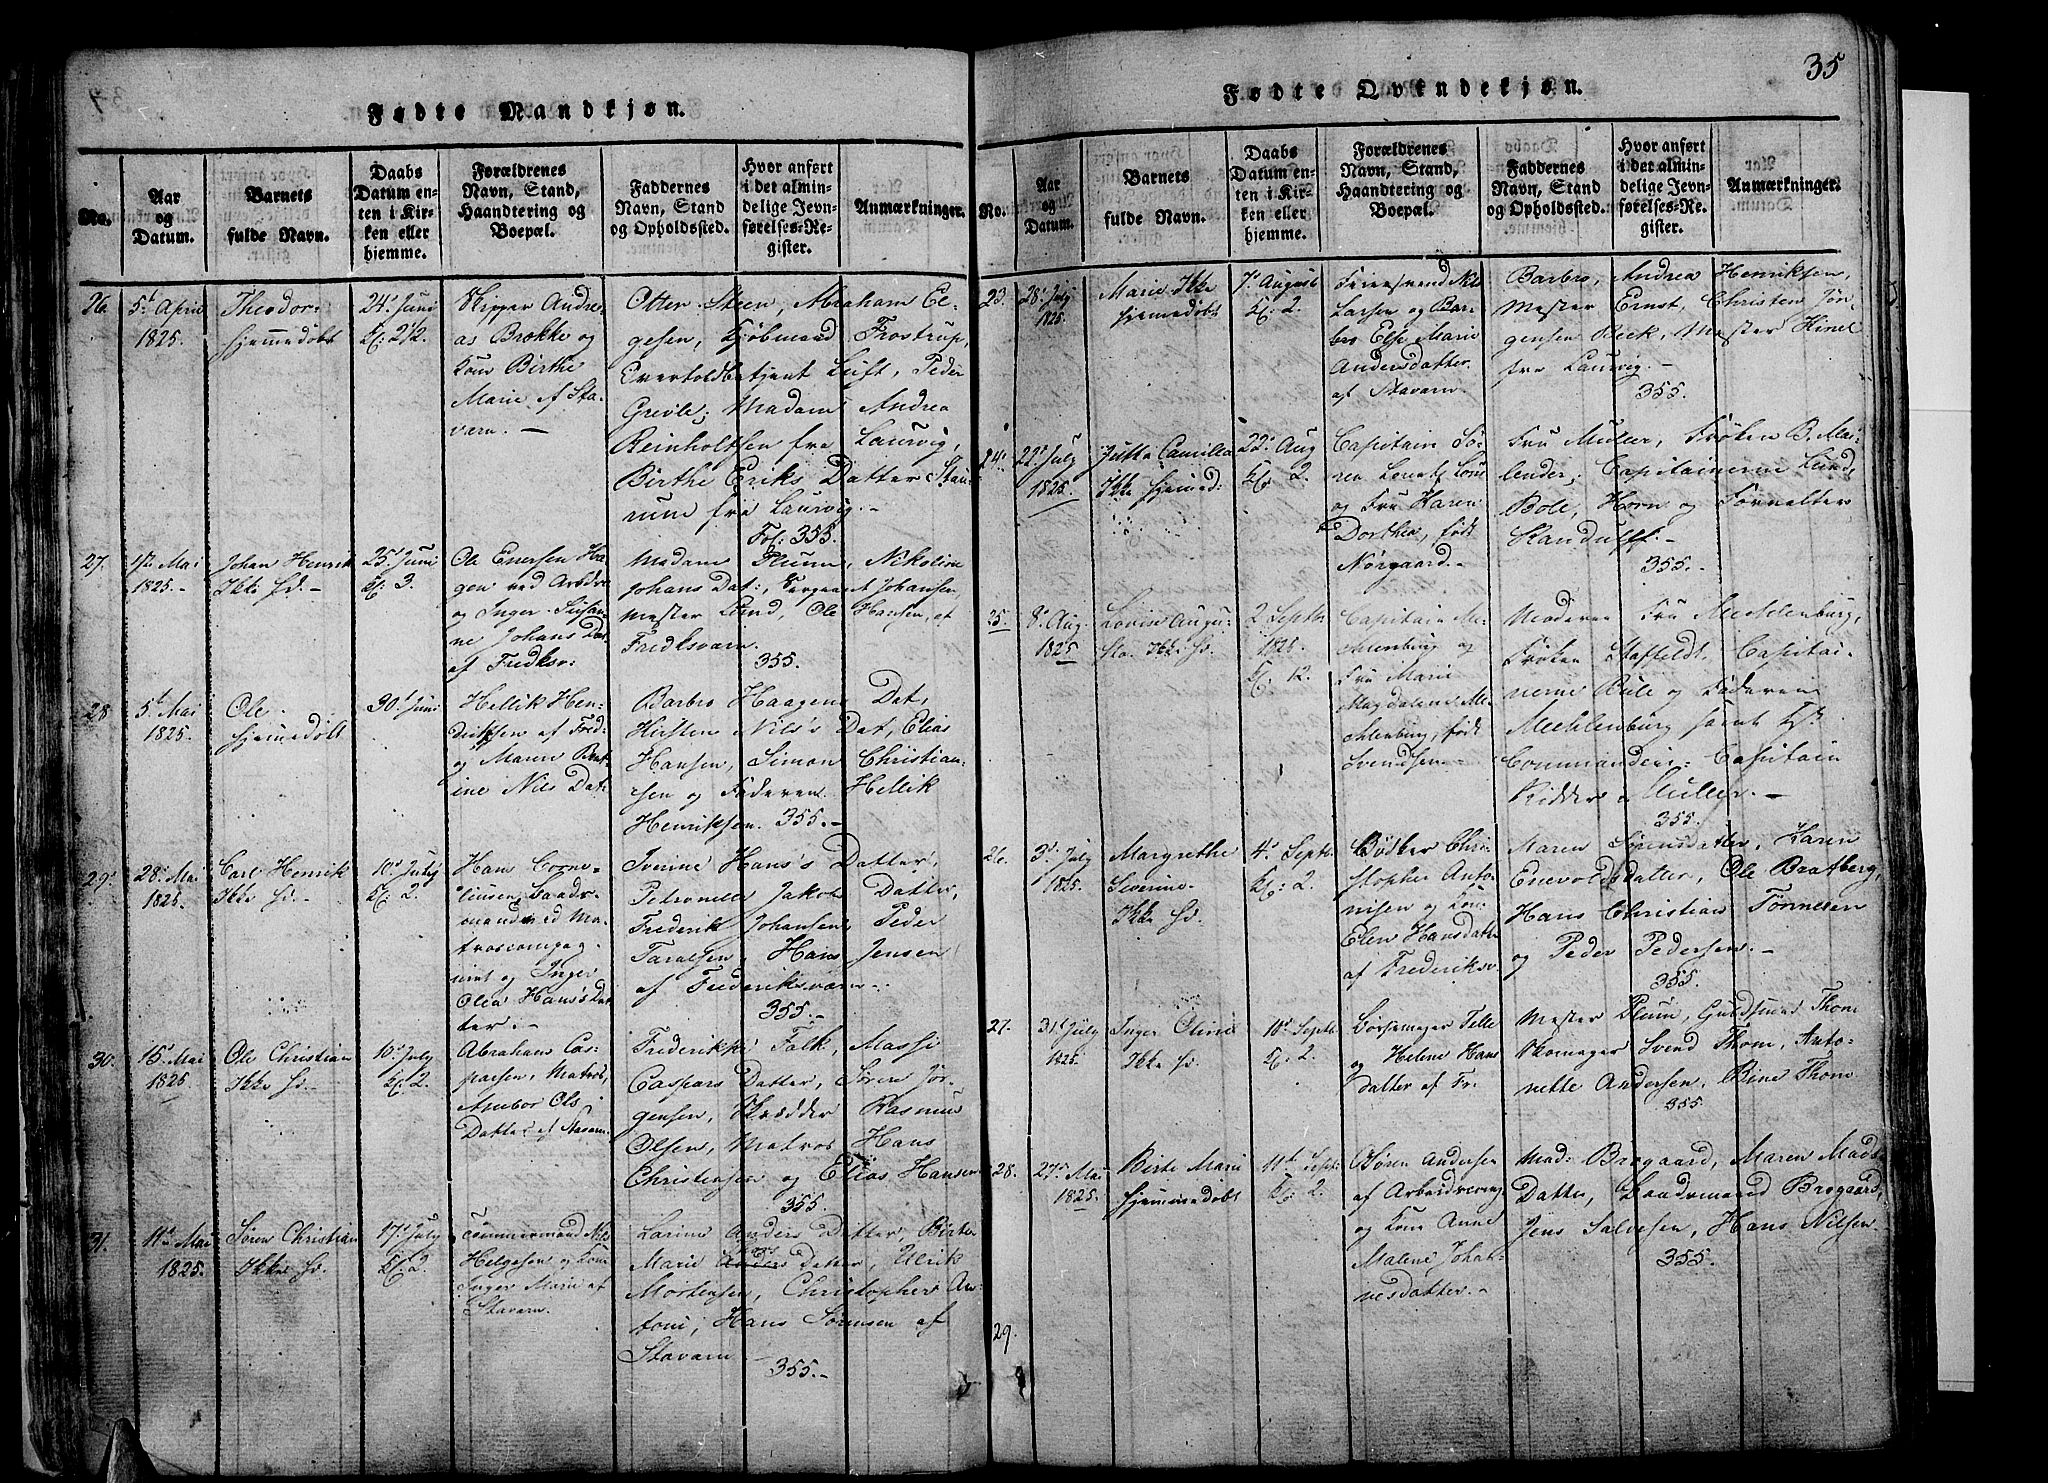 Fødte Mandkjøn.
No.
Aar
og
Datum.
Barnets
fulde Navn.
Daabs
Datum en-
ten i Kir-
ken eller
hjemme.
Forældrenes
Navn, Stand,
Haandtering og
Boepæl.
Faddernes
Navn, Stand
og Opholdssted.
Hvor anført
i det almin-
delige Jevn-
førelses-Re-
gister.
Anmærkninger.
26.
5t April
1825.
Theodor
hjemmedøbt
24d Juni
Kl: 2 1/2.
Skipper Andre-
as Brække og
Kone Birthe
Marie af Sta-
værn. –
Otter Steen, Abraham El-
gesen, Kjøbmand Frostrup,
Peder
Greile; Madam Andrea
Reinholtsen fra Laurvig,
Birthe Eriks Datter
fra Laurvig. –
Fol: 355.
27.
Mai
1825. –
Johan Henrik
Ikke Hd. –
25d Juni
Kl: 3.
Ole Enersen Ha-
gen ved
og Inger Susan-
ne Johans Dat
af Fredksv:
Madam Plum, Nikoline
Johans Dat:, Sergeant Johansen,
Mester Lund, Ole Hansen, af
Fredksværn.
355.
28
5t Mai
1825.
Ole.
hjemmedøbt
30t Juni
Hellik Hen-
driksen af Fred-
og Maren Bent-
ine Nils Dat:
Barbro Haagens Dat,
Kirsten Nils's Dat, Elias
Hansen, Simon Christian-
sen og Faderen Hellik
Henriksen. 355. –
29.
28d Mai
1825.
Carl Henrik
Ikke Hd. –
10d July
Kl: 2.
Hans Corne-
liusen, Baads-
mand ved Ma-
troscompag-
niet og Inger
Olea Hans's Dat-
ter. –
Iverine Hans's Datter,
Petronelle Jakobs Datter,
Frederik Johansen, Peder
Taralsen, Hans Jensen
af Frederiksværn. –
355. –
30.
15d Mai
1825
Ole Christian
Ikke Hd. –
10d July
Kl. 2.
Abraham Cas-
parsen, Matros,
Anebor Ols
Datter af Staværn
Frederikke Falk, Massi
Caspars Datter, Søren Jør-
gensen, Skrædder Rasmus
Olsen, Matros Hans
Christensen og Elias Hansen
355
31.
11d Mai
1825.
Søren Christian
Ikke Hd.
17d July
Kl. 2.
Tømmermand Nils
Helgesen og Kone
Inger Marie af
Staværn.
Larine Anders Datter, Birte
Marie Hans datter, Ulrik
Mortensen, Christopher An-
toni, Hans Sørensen af
Staværn –
355. –
35
Fødte Qvindekjøn.
No.
Aar
og
Datum.
Barnets
fulde Navn.
Daabs
Datum en-
ten i Kir-
ken eller
hjemme.
Forældrenes
Navn, Stand,
Haandtering og
Boepæl.
Faddernes
Navn, Stand
og Opholdssted.
Hvor anført
i det almin-
delige Jevn-
førelses-Re-
gister.
Anmærkninger.
23.
28d July
1825.
Marie Ikke
hjemmedøbt
7d August
Kl. 2.
Nils
Larsen og Bar-
bro Else Marie
Andersdatter
af Staværn.
Barbro, Andrea Henriksen,
Mester Ernst, Christen Jør-
gensen Beck, Mester Hinel
fra Laurvig. –
355.
24.
22d July
1825
Jutta Camilla
Ikke hjemmed:
22d Aug
Kl. 2.
Capitain Sø-
ren Lorents Lous
og Fru Karen
Dorthea, født
Nørgaard. –
Fru Müller, Frøken B. Mec-
lender, Capitainerne Lund,
Bole, Horn og Forvalter
Randulff. –
355. –
25.
8d Aug.
1825
Lovise Augu-
sta. Ikke Hd.
2 Septbr
1825.
Kl: 12.
Capitain Me-
hlenburg og
Fru Marie
Magdalene Me-
hlenburg, født
Svendsen. –
Moderen Fru Mechlenburg,
Frøken Staffeldt, Capitai-
nerne Bule og Faderen
Mechlenburg samt
Commandeur-Capitain
Ridder Müller. –
355.
26.
3d July
1825.
Margrethe
Severine
Ikke Hd.
4d Septbr.
Kl: 2.
Bødker Chri-
stopher Anto-
nisen og Kone
Elen Hansdatter
af Frederiksv
Maren Sørensdatter, Karen
Enevoldsdatter, Ole Bratberg,
Hans Christian Tønnesen
og Peder Pedersen. –
355.
27.
31t July
1825.
Inger Oline
Ikke Hd.
10d Septbr
Kl. 2.
Børsemager Telle
og Helene Hans
datter af Fr.
Mester Plum, Guldsmed Thom
Skomager Svend Thom, Anto-
nette Andersen, Bine Thom
355.
28.
27d Mai
1825.
Birte Marie
hjemmedøbt
11t Septbr
Kl. 2.
Søren Andersen
af
og Kone Anne
Malene Johan-
nesdatter. –
Mad: Brogaard, Maren Mads
Datter, Baadsmand Brogaard,
Jens Salvesen, Hans Nilsen.
355. –
29.